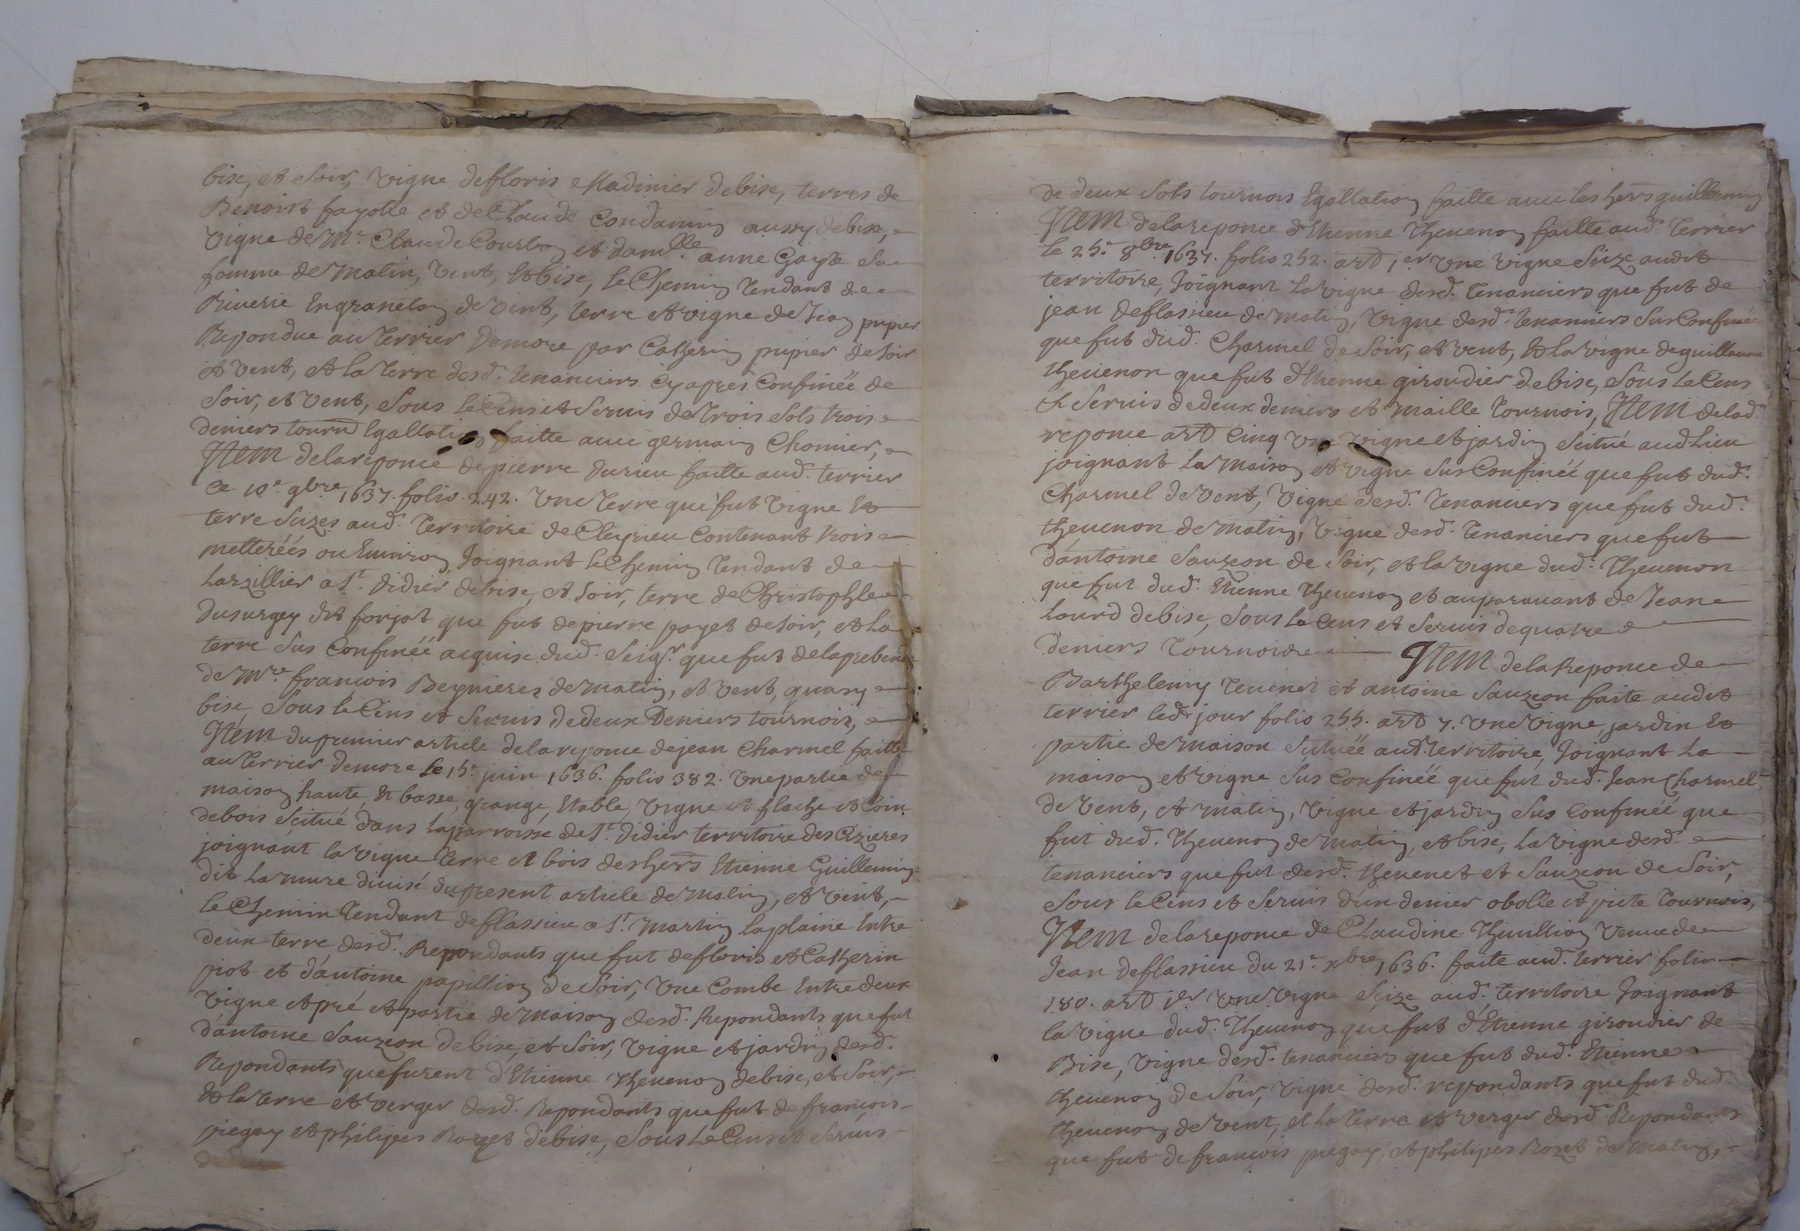 bise, et soir, vigne de floris Madinier de bise, terres de
Benoist fayolle et de Claude Condamin aussy de bise,
vigne de Mr. Claude Courbon et dam.lle anne Gayte sa
famme de matin, vent, et bise, le Chemin tendant de
Riverie En graneton de vent, terre et vigne de Jean pupier
Repondue au terrier demore par Catherin pupier de soir
et vent, et la terre desd. tenanciers Cy apres Confinéé de
Soir, et vent, sous le Cens et servis de trois sols trois
deniers tourn. Egallation faitte avec germain Chomier,
Item de la reponce de pierre durieu faitte aud. terrier
le 10e 9bre 1637. folio. 242. une terre que fut vigne et
terre sizes aud. territoire de Cleyrieu Contenant trois
metteréés ou Environ Joignant le Chemin tendant de
Larzillier a St. didier de bise, et soir, terre de Christophle
dusurgey dit forjot que fut de pierre payet de soir, et la
terre sus Confinéé acquise dud. seigr. que fut de la prebende
de Mre francois Beynieres de matin, et vent, quasy
bise sous le Cens et servis de deux Deniers tournois,
Item du premier article de la reponce de jean Charmel faitte
au terrier demore le 15e juin 1636. folio 382. une partie de
maison haute, et basse, grange, Etable, vigne et flache et Coin
de bois scitué dans la parroisse de St. didier territoire des Cizieres
joignant la vigne terre et bois des hers Etienne Guillemin
dit la mure divisé du present article de matin, et vent,
le Chemin tendant de flassieu a St. Martin la plaine Entre
deux terre desd. Repondants que fut de floris et Catherin
piot et d'antoine papillion de soir, une Combe Entre deux
vigne et pré et partie de maison desd. Repondants que fut
d'antoine sauzeon de bise, et soir, vigne et jardin desd.
Repondants que furent d'Etienne thevenon de bise, et soir,
et la terre et verger desd. Repondants que fut de francois
piegay et philipes Rozet de bise, sous le Cens et servis
de deux sols tournois Egallation faitte avec les hers guillemin
Item de la reponce d'Etienne thevenon faitte aud. terrier
le 25e 8bre 1637. folio 252. art. 1er une vigne size audit
territoire, Joignant la vigne desd. tenanciers que fut de
jean deflassieu de matin, vigne desd. tenanciers sus Confinéé
que fut dud. Charmel de soir, et vent, et la vigne de guillaume
thevenon que fut d'Etienne giroudier de bise, sous le Cens
et servis de deux deniers et maille tournois, Item de lad.
reponce art. Cinq une vigne et jardin scitué aud. lieu
joignant la maison et vigne sus Confinéé que fut dud.
Charmel de vent, vigne desd. tenanciers que fut dud.
thevenon de matin, vigne desd. tenanciers que fut
d'antoine sauzeon de soir, et la vigne dud. thevenon
que fut dud. Etienne thevenon et auparavant de Jean
Lourd de bise, sous le Cens et servis de quatre
deniers tournois Item de la Reponce de
Barthelemy tevenet et antoine sauzeon faite audit
terrier led. jour folio 255. art. 7. une vigne jardin et
partie de maison scituéé aud. territoire, Joignant la
maison et vigne sus Confinéé que fut dud. Jean Charmel
de vent, et matin, vigne et jardin sus Confinéé que
fut dud. thevenon de matin, et bise, la vigne desd.
tenanciers que fut desd. tevenet et sauzeon de soir,
sous le Cens et servis d'un denier obolle et picte tournois,
Item de la reponce de Claudine thuillion veuve de
Jean deflassieu du 21e xbre 1636. faite aud. terrier folio
180. art. 1er une vigne size aud. territoire Joignant
la vigne dud. thevenon que fut d'Etienne giroudier de
Bise, vigne desd. tenanciers que fut dud. Etienne
thevenon de soir, vigne desd. repondants que fut dud.
thevenon de vent, et la terre et verger desd. Repondants
que fut de francois piegay, et philipes Rozet de matin,